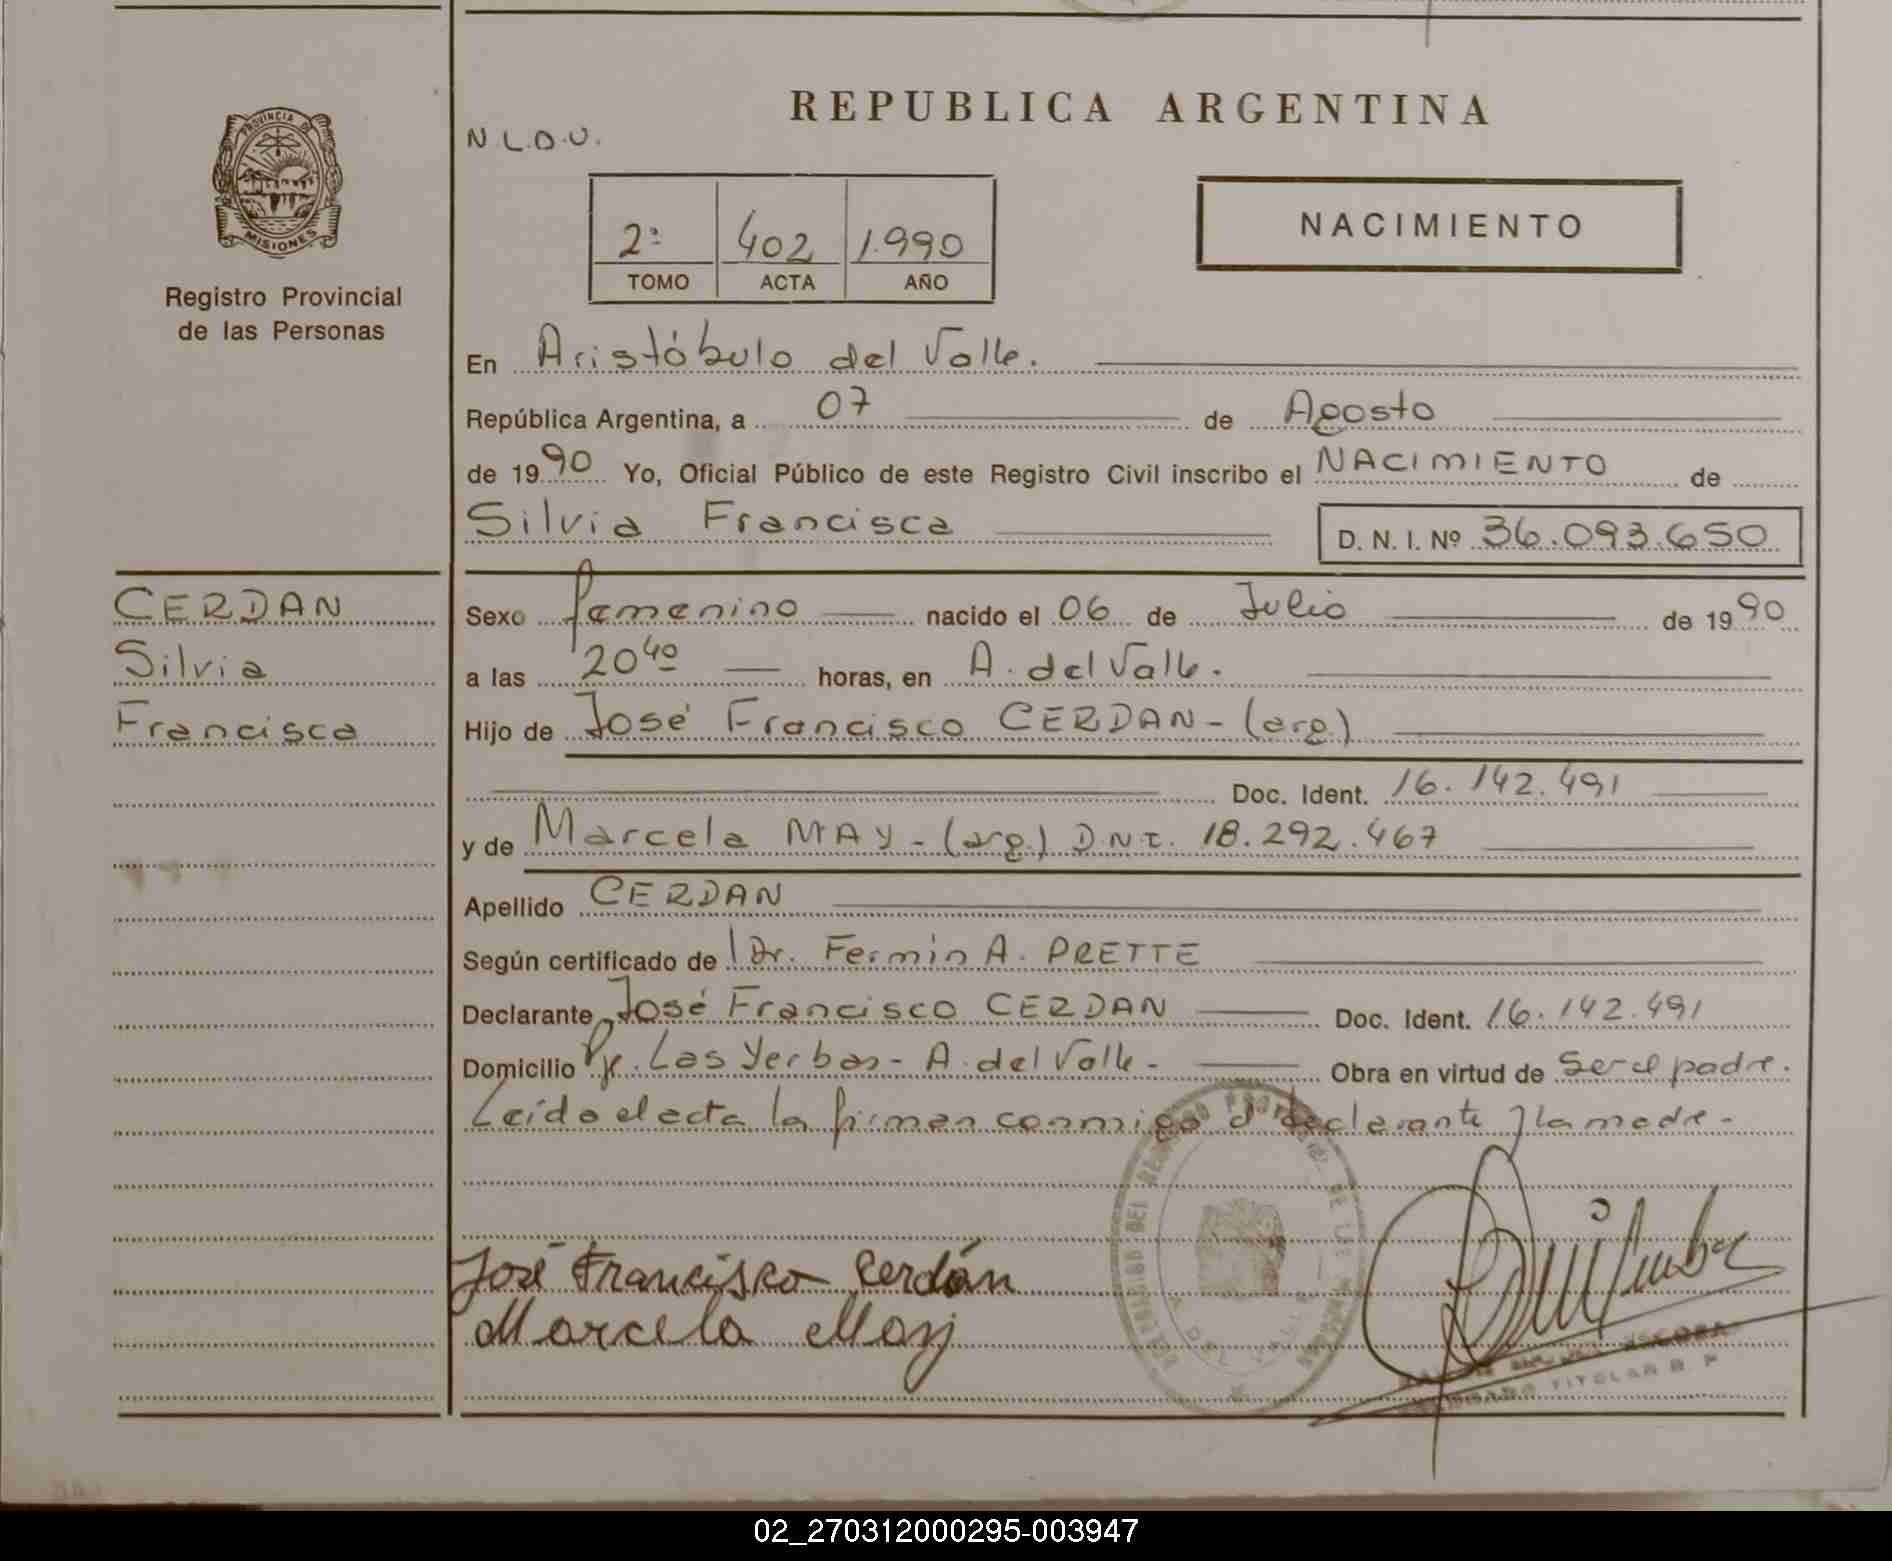 REPUBLICA ARGENTINA
N.L.D.U.
PROVINCIA DE
MISIONES
Registro Provincial
de las Personas
2º 402 1.990
TOMO ACTA AÑO
NACIMIENTO
En Aristóbulo del Valle.
República Argentina, a 07 de Agosto
de 1990 Yo, Oficial Público de este Registro Civil inscribo el NACIMIENTO de
Silvia Francisca D. N. I. Nº 36.093.650
CERDAN
Silvia
Francisca
Sexo femenino nacido el 06 de Julio de 1990
a las 20 40 horas, en A. del Valle.
Hijo de José Francisco CERDAN - (arg.)
Doc. Ident. 16.142.491
y de Marcela MAY - (arg.) D.N.I. 18.292.467
Apellido CERDAN
Según certificado de Dr. Fermin A. PRETTE
Declarante José Francisco CERDAN Doc. Ident. 16.142.491
Domicilio Pje. Las Yerbas - A. del Valle - Obra en virtud de ser el padre.
Leído el acta la firman conmigo el declarante y la madre -
José Francisco Cerdán
Marcela May
A. DEL VALLE
TITULAR
02_270312000295-003947